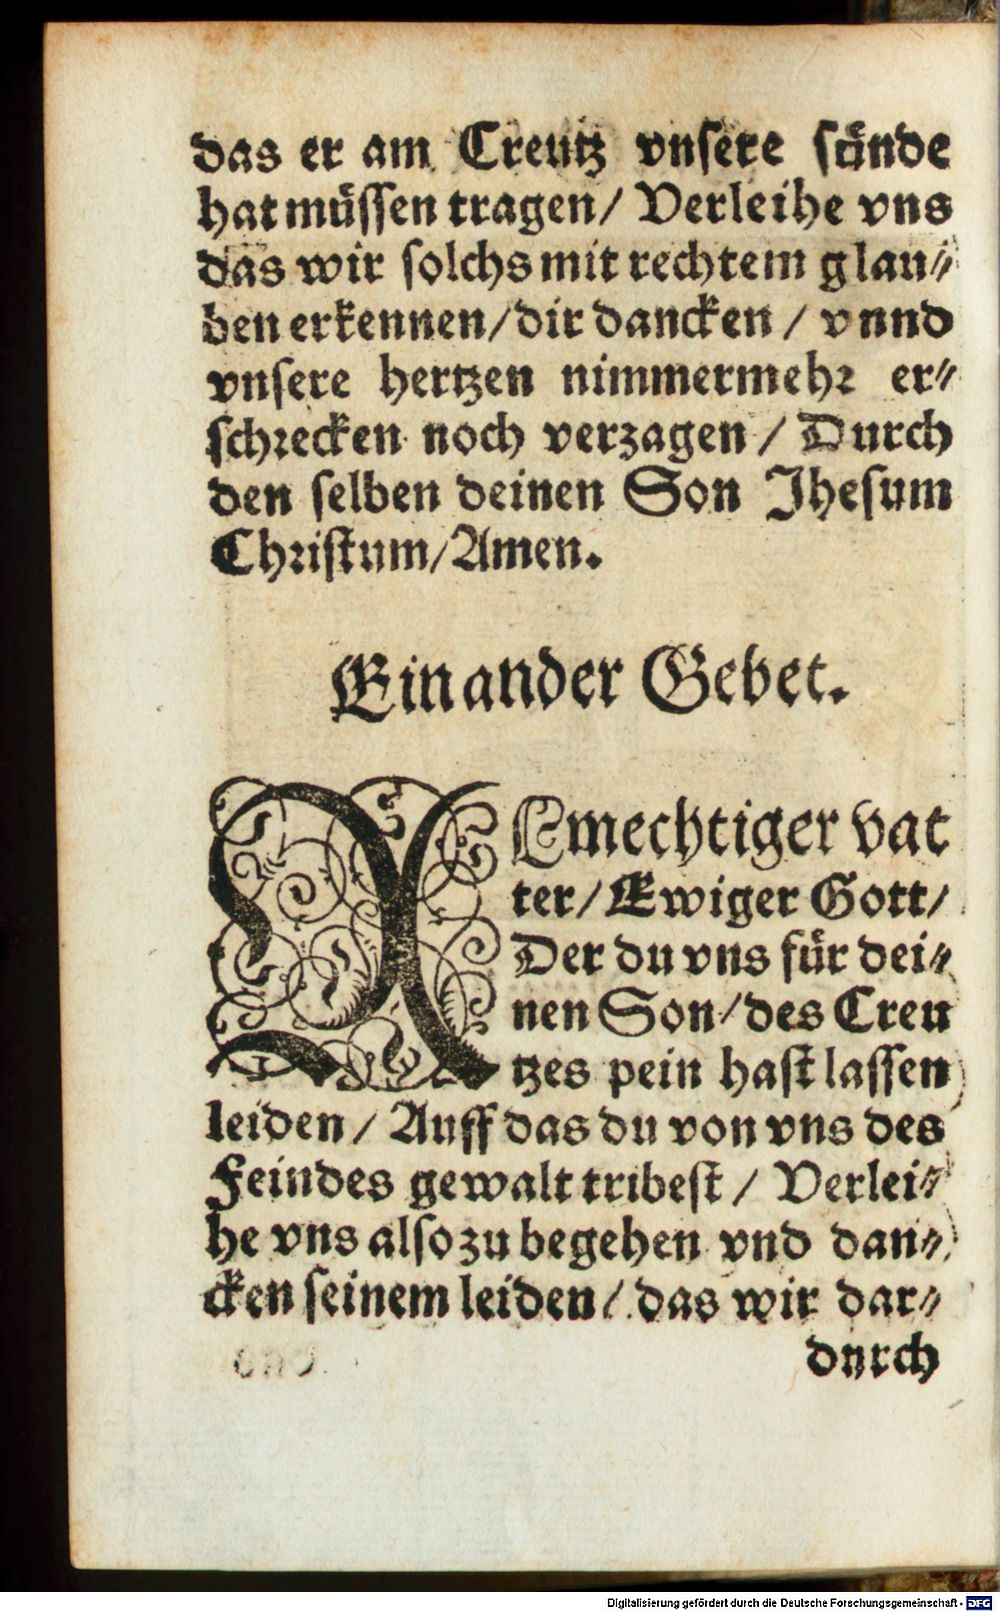 das er am Creutz vnsere sünde
hat müssen tragen/ Verleihe vns
das wir solchs mit rechtem glau⸗
ben erkennen/ dir dancken / vnnd
vnsere hertzen nimmermehr er⸗
schrecken noch verzagen / Durch
den selben deinen Son Jhesum
Christum/ Amen.
Ein ander Gebet.
ALmechtiger vat
ter/ Ewiger Gott/
Der du vns für dei⸗
nen Son/ des Creu
tzes pein hast lassen
leiden / Auff das du von vns des
Feindes gewalt tribest / Verlei⸗
he vns also zu begehen vnd dan⸗
cken seinem leiden / das wir dar⸗
durch
Digitalisierung gefördert durch die Deutsche Forschungsgemeinschaft - DFG